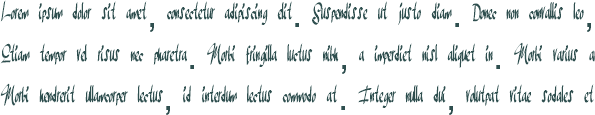 Lorem ipsum dolor sit amet, consectetur adipiscing elit. Suspendisse ut justo diam. Donec non convallis leo,
Etiam tempor vel risus nec pharetra. Morbi fringilla luctus nibh, a imperdiet nisl aliquet in. Morbi varius a
Morbi hendrerit ullamcorper lectus, id interdum lectus commodo at. Integer nulla dui, volutpat vitae sodales et